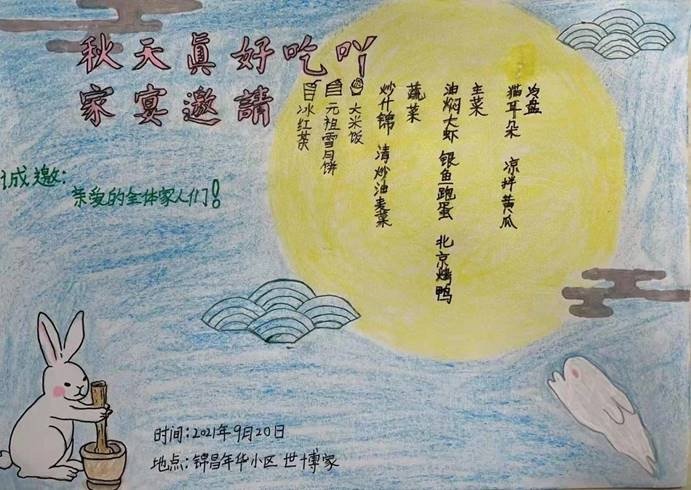 秋天真好吃吖
家宴邀請
诚邀:
亲爱的全体家人们!
冷盘
猫耳朵 凉拌黄瓜
主菜
油焖大虾 银鱼跑蛋 北京烤鸭
蔬菜
炒什锦 清炒油麦菜
大米饭
元祖雪月饼
冰红茶
时间:2021年9月20日
地点:锦昌年华小区 世博家